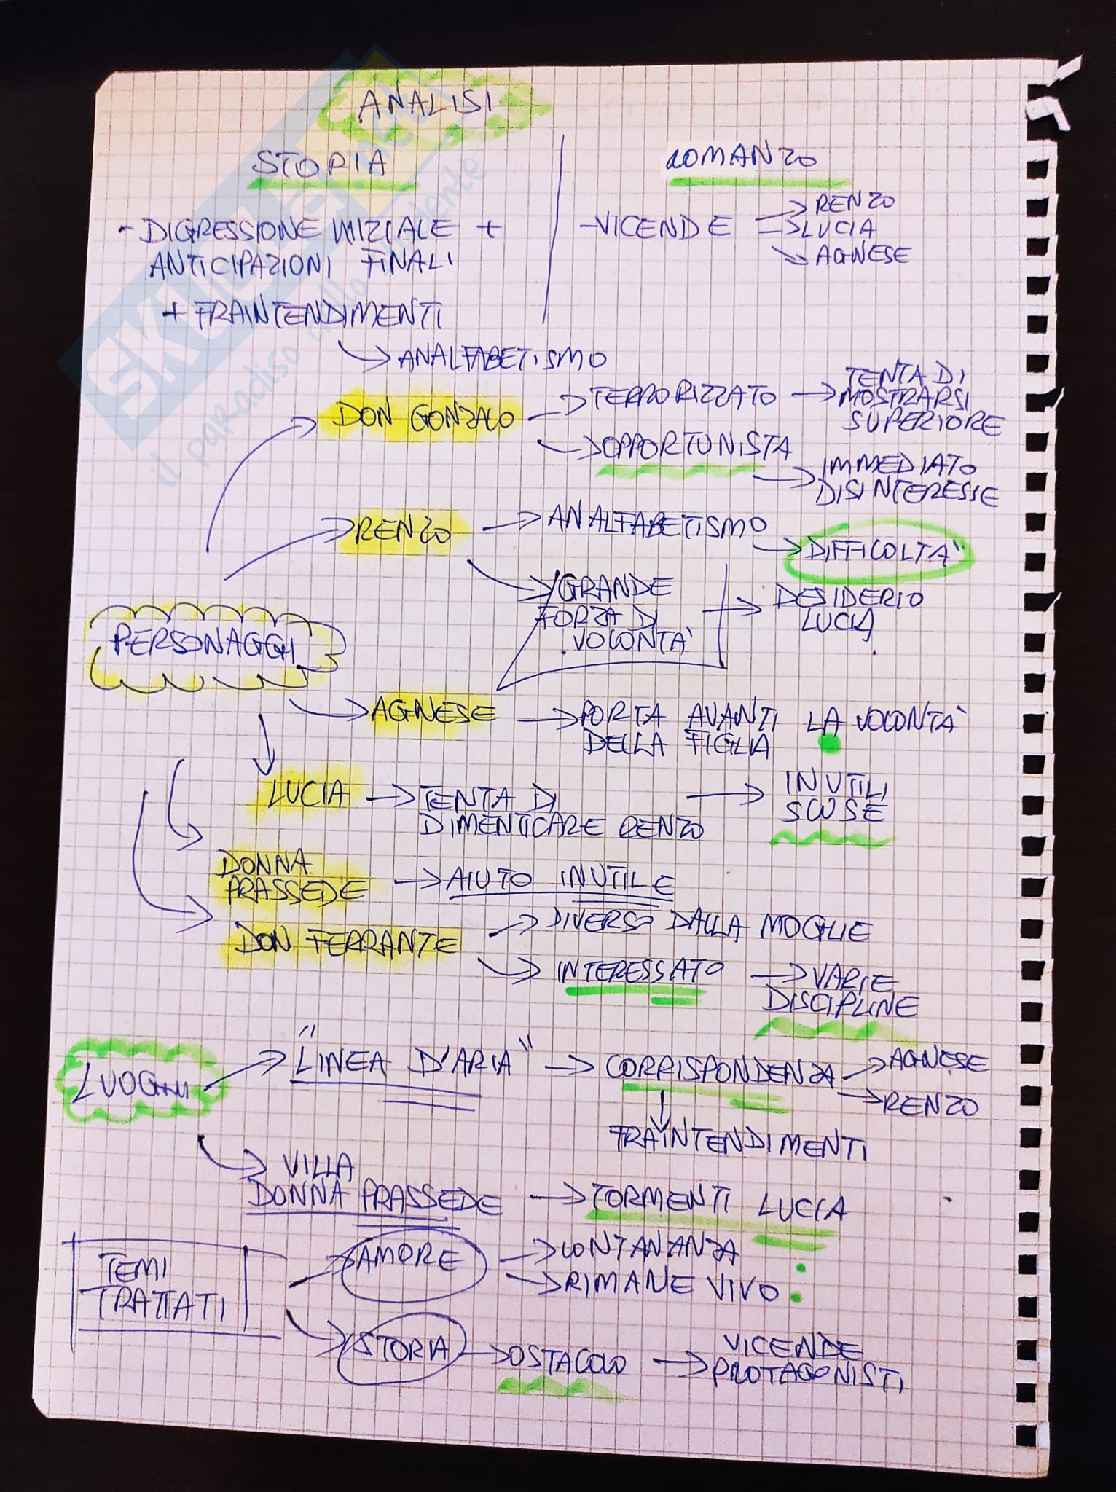 ANALISI
STORIA
ROMANZO
- DIGRESSIONE INIZIALE +
ANTICIPAZIONI FINALI
+ FRAINTENDIMENTI
→ ANALFABETISMO
- VICENDE → RENZO
→ LUCIA
→ AGNESE
PERSONAGGI
DON GONZALO → TERRORIZZATO → TENTA DI
MOSTRARSI
SUPERIORE
→ OPPORTUNISTA → IMMEDIATO
DISINTERESSE
RENZO → ANALFABETISMO → DIFFICOLTA'
→ GRANDE
FORZA DI
VOLONTA' → DESIDERIO
LUCIA
AGNESE → PORTA AVANTI LA VOLONTA'
DELLA FIGLIA
LUCIA → TENTA DI
DIMENTICARE RENZO → INUTILI
SCUSE
DONNA
PRASSEDE → AIUTO INUTILE
DON FERRANTE → DIVERSO DALLA MOGLIE
→ INTERESSATO → VARIE
DISCIPLINE
LUOGHI → "LINEA D'ARIA" → CORRISPONDENZA → AGNESE
→ RENZO
FRAINTENDIMENTI
→ VILLA
DONNA PRASSEDE → TORMENTI LUCIA
TEMI
TRATTATI
AMORE → LONTANANZA
→ RIMANE VIVO
STORIA → OSTACOLO → VICENDE
PROTAGONISTI